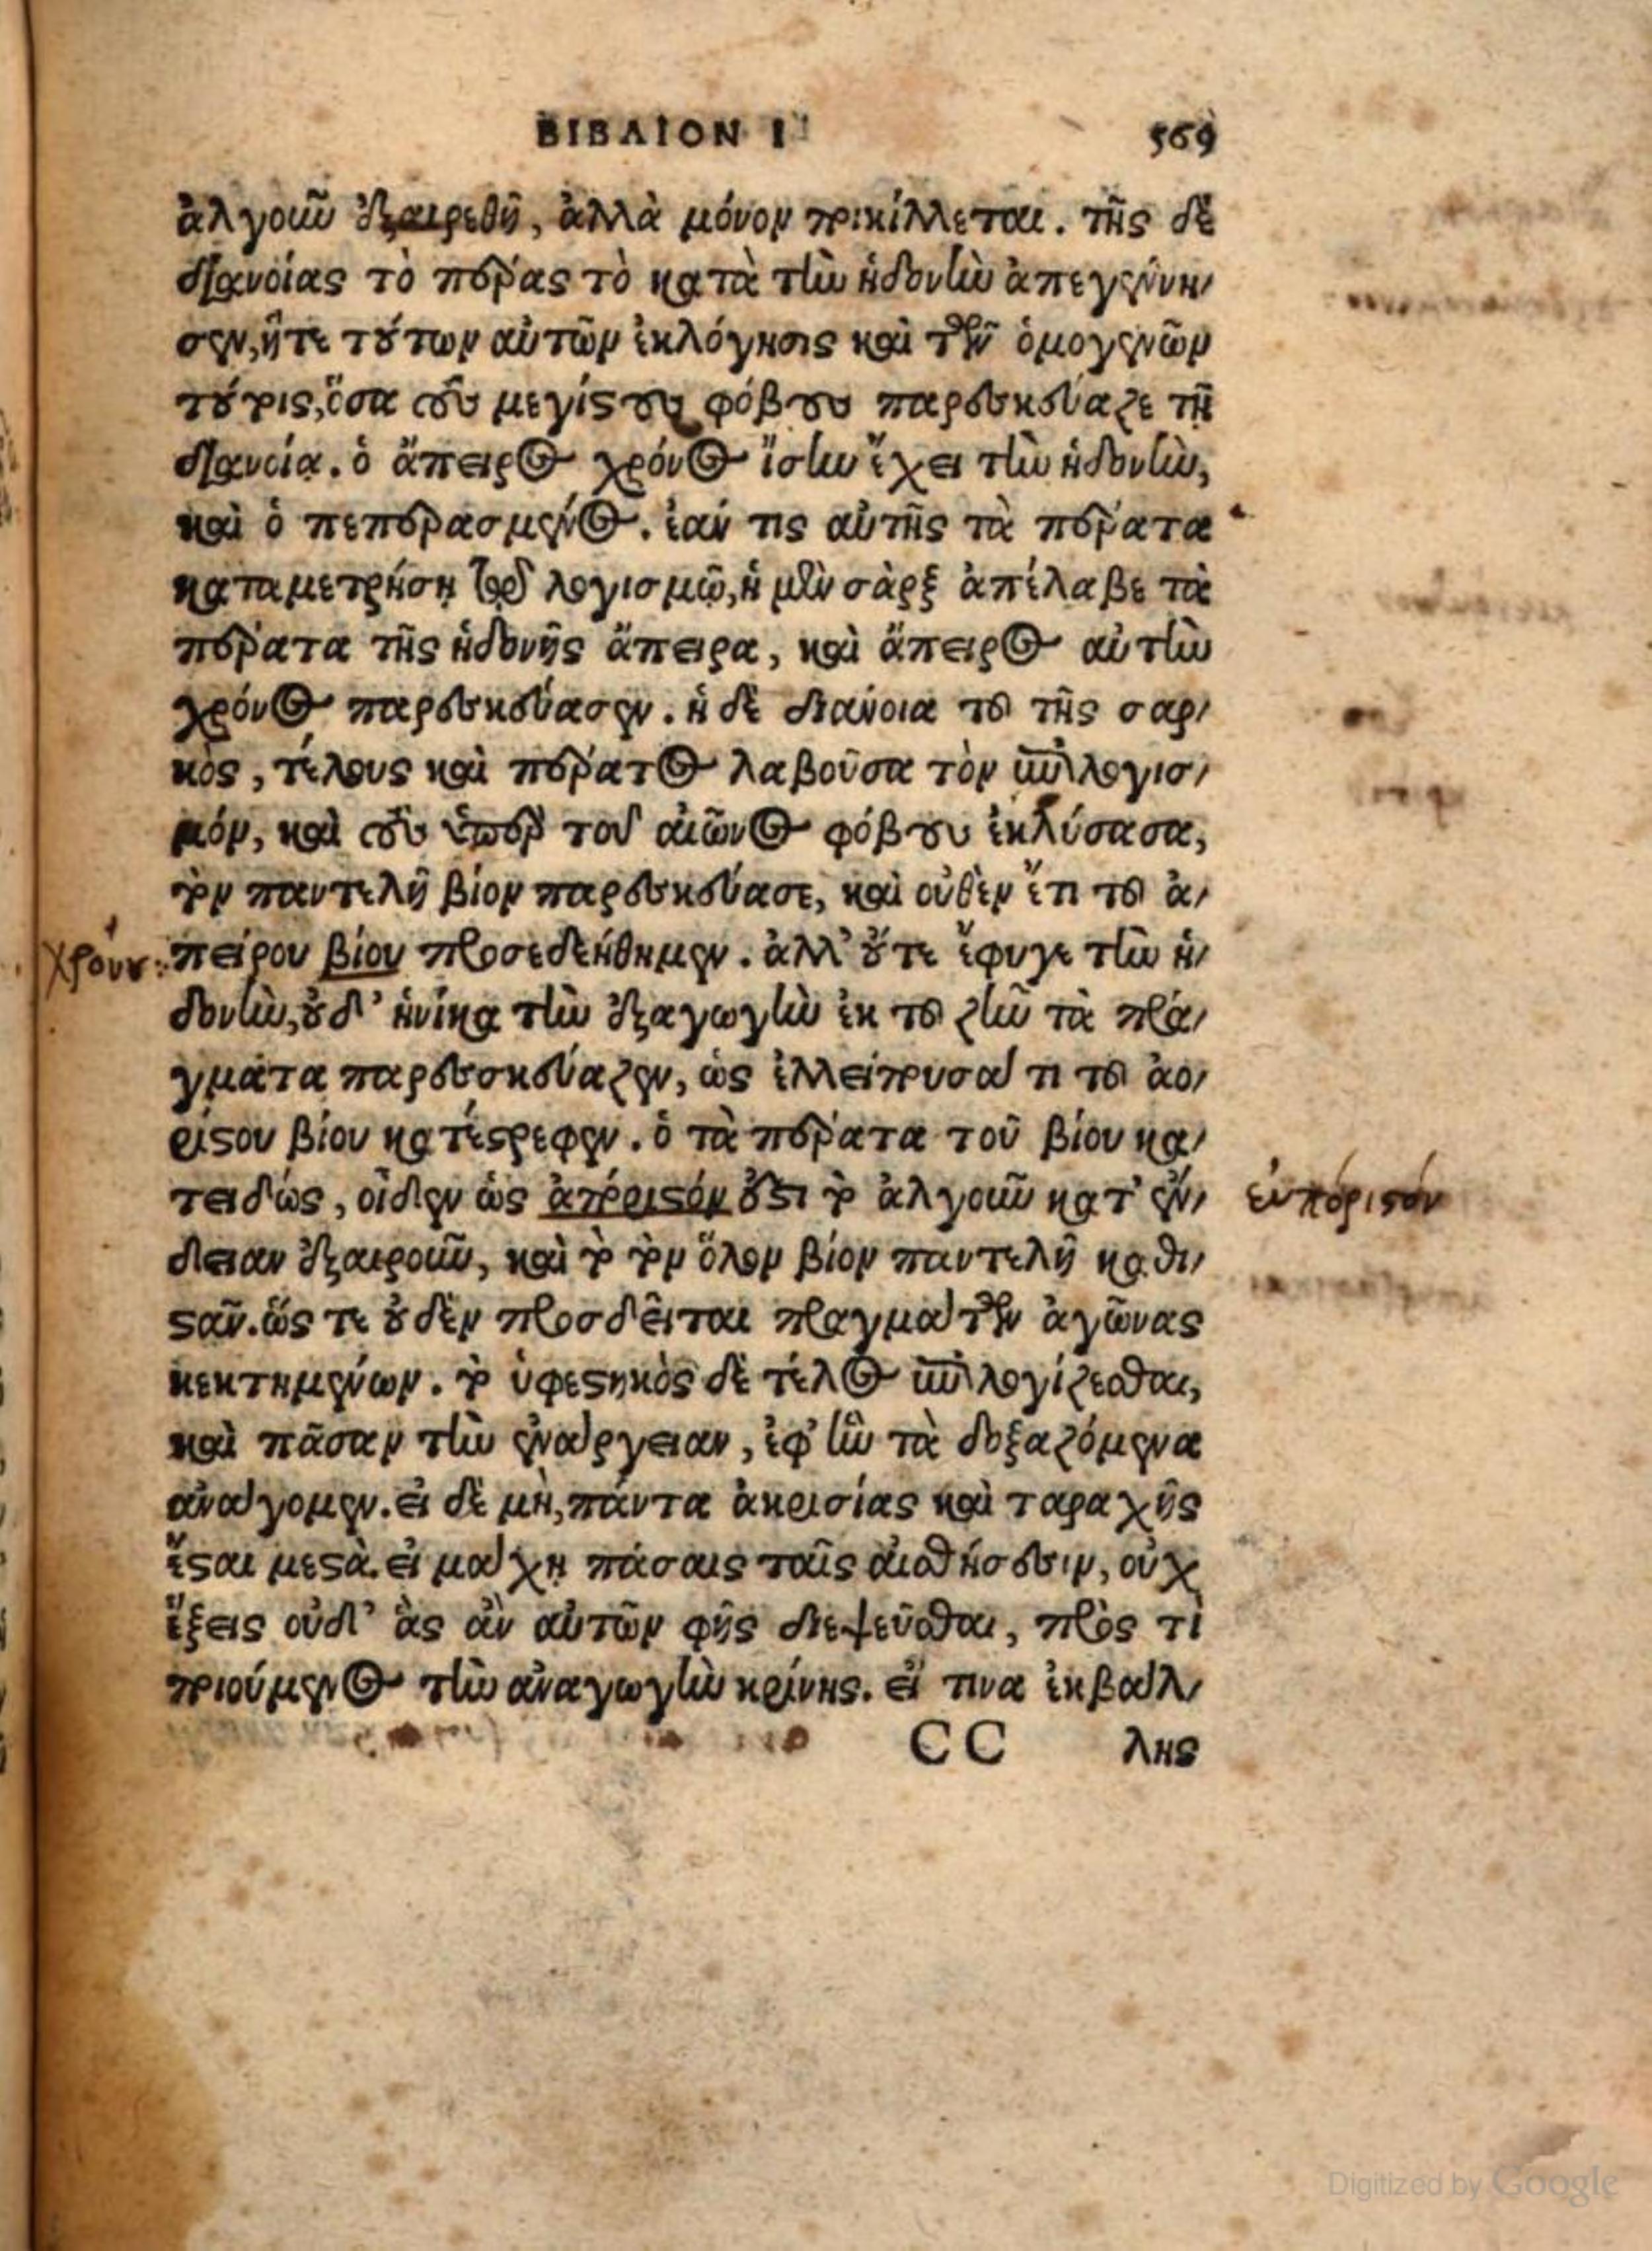 ΒΙΒΛΙΟΝ Ι 569
ἀλγοῦν ἐξαιρεθῇ, ἀλλὰ μόνον ποικίλλεται. τῆς δὲ
διανοίας τὸ πέρας τὸ κατὰ τὴν ἡδονὴν ἀπεγέννη-
σεν, ἥτε τούτων αὐτῶν ἐκλόγησις καὶ τῶν ὁμογενῶν
τούτοις, ὅσα τοὺ μεγίστου φόβου παρεσκεύαζε τῇ
διανοίᾳ. ὁ ἄπειρος χρόνος ἴσην ἔχει τὴν ἡδονὴν,
καὶ ὁ πεπερασμένος. ἐάν τις αὐτῆς τὰ πέρατα
καταμετρήσῃ τῷ λογισμῷ, ἡ μὲν σὰρξ ἀπέλαβε τὰ
πέρατα τῆς ἡδονῆς ἄπειρα, καὶ ἄπειρος αὐτὴν
χρόνος παρεσκεύασεν. ἡ δὲ διάνοια τοῦ τῆς σαρ-
κὸς, τέλους καὶ πέρατος λαβοῦσα τὸν ἐπιλογισ-
μόν, καὶ τοὺ ὑπὲρ τοῦ αἰῶνος φόβου ἐκλύσασα,
τὸν παντελῆ βίον παρεσκεύασε, καὶ οὐθὲν ἔτι τοῦ ἀ-
χρόνου: πείρου βίου προσεδεήθημεν. ἀλλ' οὔτε ἔφυγε τὴν ἡ-
δονὴν, οὐδ' ἡνίκα τὴν ἐξαγωγὴν ἐκ τοῦ ζῆν τὰ πρά-
γματα παρεσκεύαζεν, ὡς ἐλλείπουσά τι τοῦ ἀο-
ρίστου βίου κατέστρεφεν. ὁ τὰ πέρατα τοῦ βίου κα-
τειδώς, οἶδεν ὡς ἀπόριστόν ἐστι τὸ ἀλγοῦν κατ' ἔν- εὐπόριστόν
δειαν ἐξαιροῦν, καὶ τὸ τὸν ὅλον βίον παντελῆ καθι-
στᾶν. ὥς τε οὐδὲν προσδεῖται πραγμάτων ἀγῶνας
κεκτημένων. τὸ ὑφεστηκὸς δὲ τέλος ἐπιλογίζεσθαι,
καὶ πᾶσαν τὴν ἐνάργειαν, ἐφ' ἣν τὰ δοξαζόμενα
ἀνάγομεν. εἰ δὲ μὴ, πάντα ἀκρισίας καὶ ταραχῆς
ἔσται μεστὰ. εἰ μάχῃ πάσαις ταῖς αἰσθήσεσιν, οὐχ
ἕξεις οὐδ' ἃς ἂν αὐτῶν φῇς διεψεῦσθαι, πρὸς τί
ποιούμενος τὴν ἀναγωγὴν κρίνῃς. εἴ τινα ἐκβάλ-
CC λης
Digitized by Google